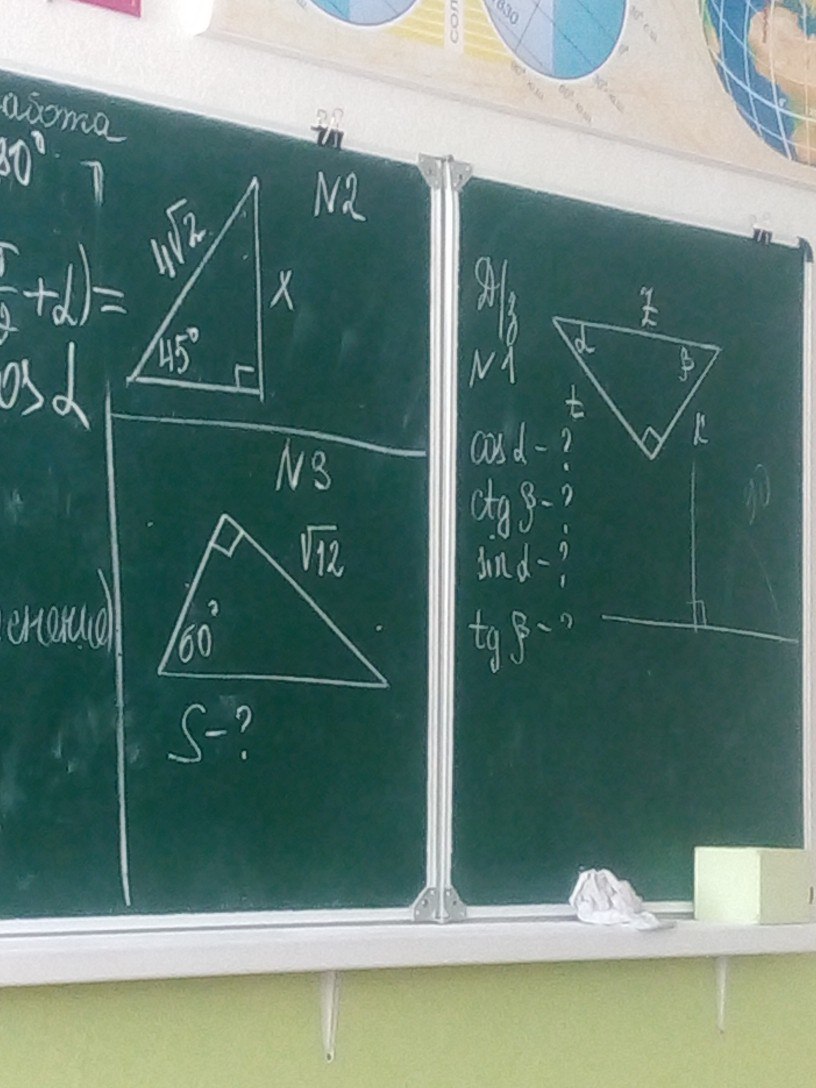 абота
80°
+α)=
cos α
снение)
N2
4√2
x
45°
N3
√12
60°
S-?
Д/з
N1
z
α
β
t
к
cos α - ?
ctg β - ?
sin α - ?
tg β - ?